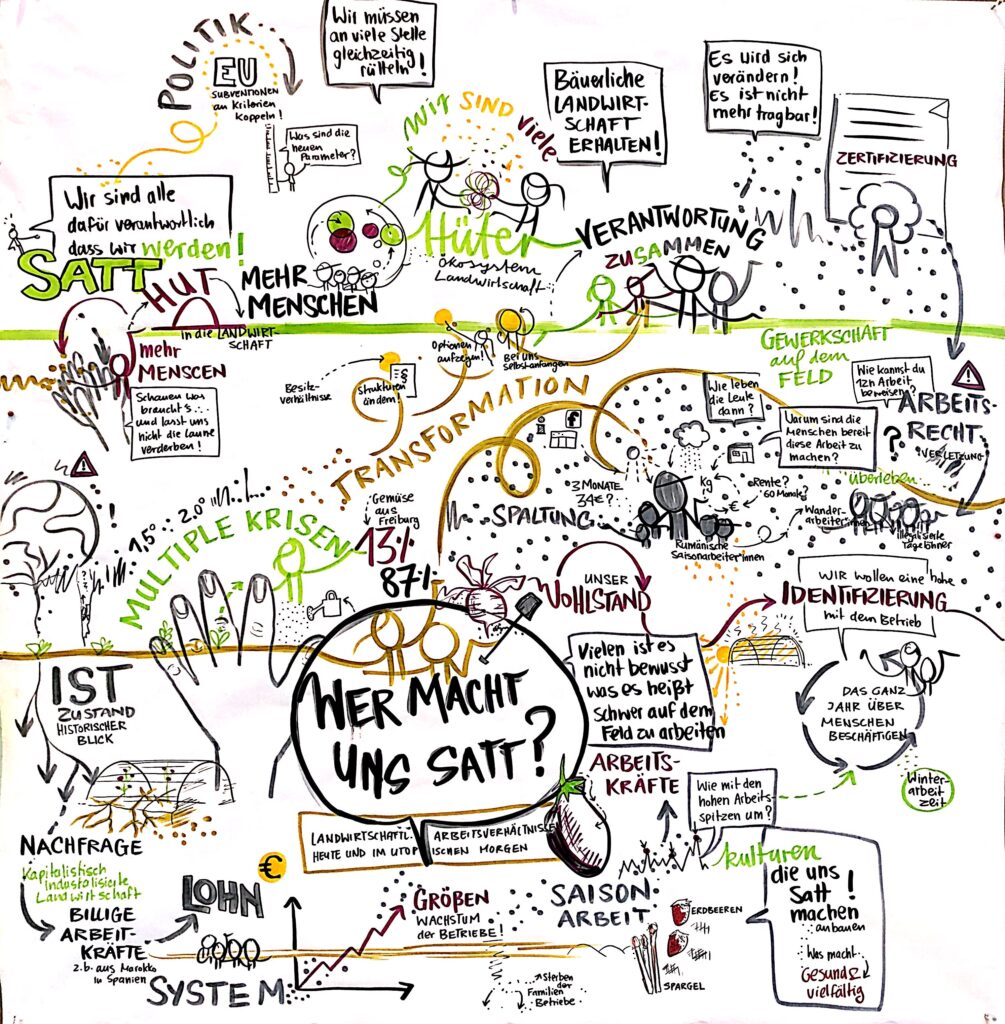 POLITIK
EU
SUBVENTIONEN
an Kriterien
koppeln!
Was sind die
neuen
Parameter?
Wir müssen
an viele Stelle
gleichzeitig
rütteln!
Wir SIND viele
Bäuerliche
LANDWIRT-
SCHAFT
ERHALTEN!
Es wird sich
verändern!
Es ist nicht
mehr tragbar!
ZERTIFIZIERUNG
Wir sind alle
dafür verantwortlich
dass wir werden!
SATT
HUT
in die LANDWIRT-
SCHAFT
MEHR
MENSCHEN
Hüter
ökosystem
Landwirtschaft
VERANTWORTUNG
ZUSAMMEN
GEWERKSCHAFT
auf dem
FELD
mehr
MENSCEN
Schauen was
braucht's...
und lasst uns
nicht die Laune
verderben!
Besitz-
verhältnisse
Strukturen
ändern!
§
Optionen
aufzeigen!
Bei uns
selbst anfangen
TRANSFORMATION
Wie leben
die Leute
dann?
Warum sind die
Menschen bereit
diese Arbeit zu
machen?
Wie kannst du
12h Arbeit
beweisen?
ARBEITS-
RECHT
VERLETZUNG
?
überleben
Wander-
arbeiter*innen
illegalisierte
Tagelöhner
1,5° 2.0°
MULTIPLE KRISEN
Gemüse
aus
Freiburg
13%
87%
f
3 MONATE
34€?
SPALTUNG
kg
€
Rente?
60 Monate?
Rumänische
Saisonarbeiter*innen
UNSER
WOHLSTAND
WIR wollen eine hohe
IDENTIFIZIERUNG
mit dem Betrieb
IST
ZUSTAND
HISTORISCHER
BLICK
WER MACHT
UNS SATT?
LANDWIRTSCHAFTL. ARBEITSVERHÄLTNISSE
HEUTE UND IM UTOPISCHEN MORGEN
Vielen ist es
nicht bewusst
was es heißt
schwer auf dem
Feld zu arbeiten
DAS GANZ
JAHR ÜBER
MENSCHEN
BESCHÄFTIGEN
Winter-
arbeit
zeit
ARBEITS-
KRÄFTE
Wie mit den
hohen Arbeits
spitzen um?
NACHFRAGE
Kapitalistisch
industalisierte
Landwirtschaft
BILLIGE
ARBEIT-
KRÄFTE
z.b. aus Marokko
in Spanien
LOHN
€
SYSTEM
GRÖßEN
WACHSTUM
der BETRIEBE!
Sterben
der
Familien
Betriebe
SAISON
ARBEIT
ERDBEEREN
SPARGEL
kulturen
die uns
Satt !
machen
anbauen
Was macht
Gesund &
vielfältig